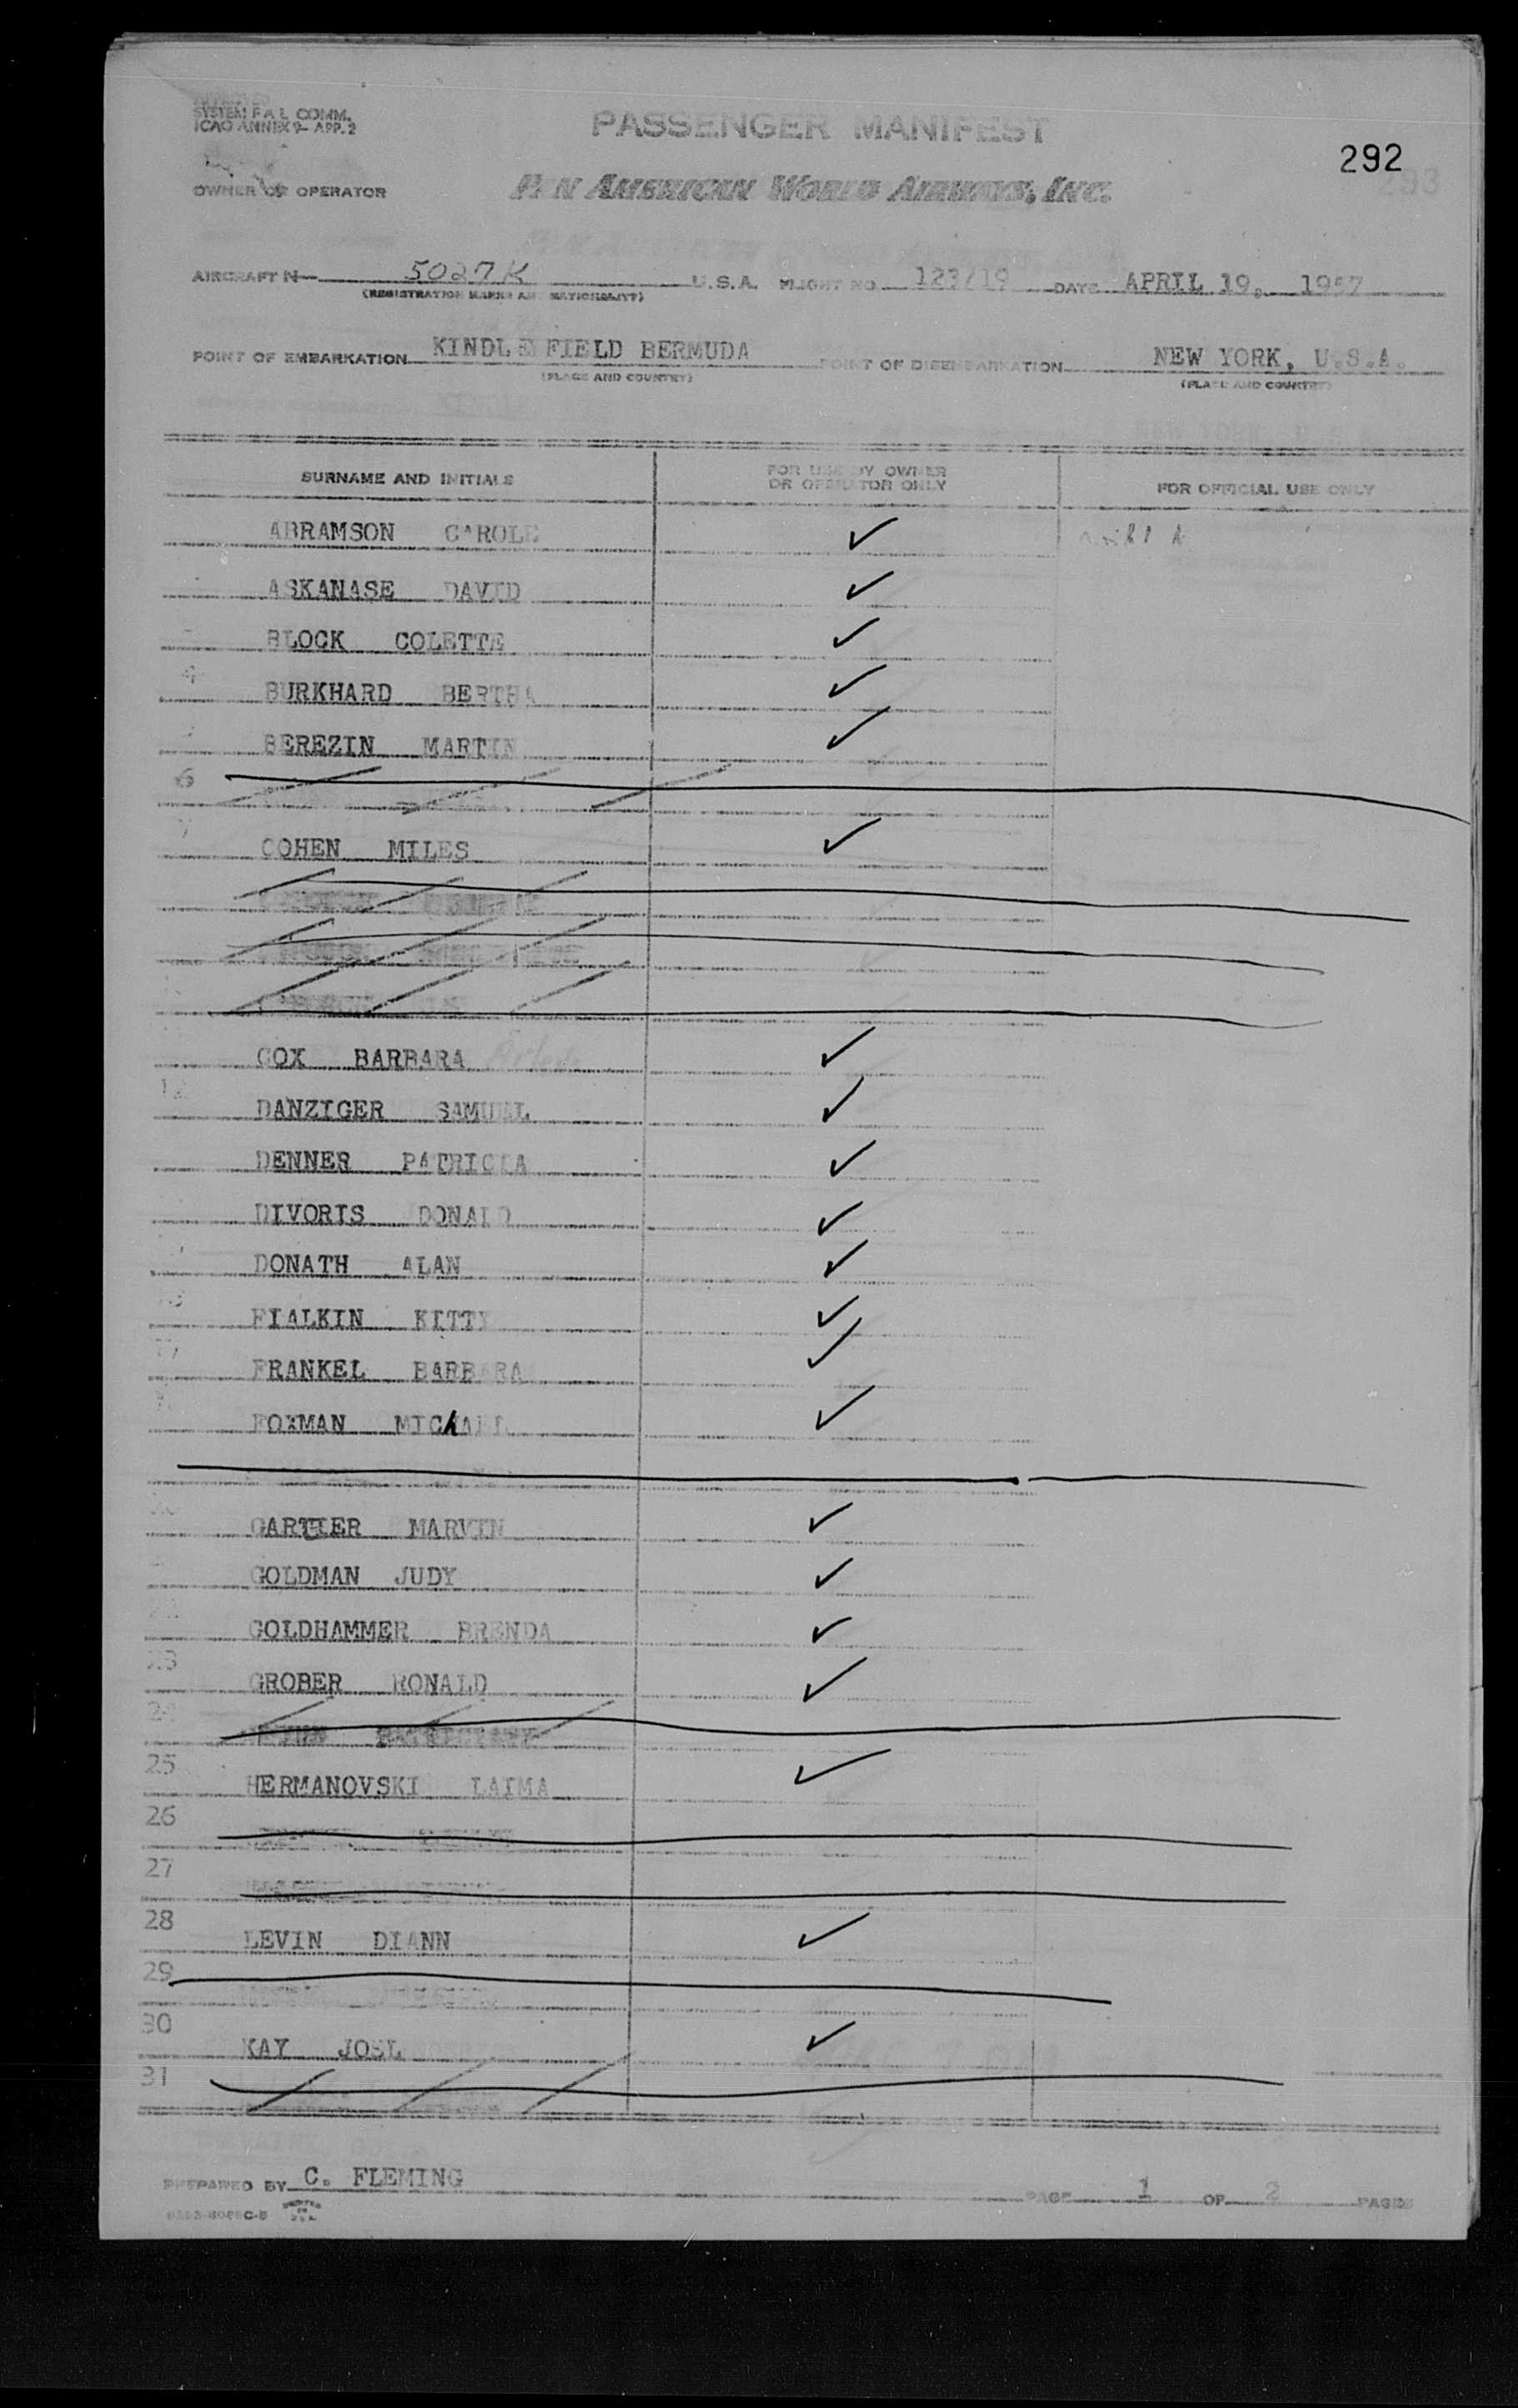 SYSTEM F A L COMM.
ICAO ANNEX 9- APP. 2
PASSENGER MANIFEST
292
293
OWNER OR OPERATOR
PAN AMERICAN WORLD AIRWAYS, INC.
AIRCRAFT N 5027K U.S.A. FLIGHT NO 123/19 DATE APRIL 19, 1957
(REGISTRATION MARKS AND NATIONALITY)
POINT OF EMBARKATION KINDLE FIELD BERMUDA POINT OF DISEMBARKATION NEW YORK, U.S.A.
(PLACE AND COUNTRY) (PLACE AND COUNTRY)
SURNAME AND INITIALS FOR USE BY OWNER OR OPERATOR ONLY FOR OFFICIAL USE ONLY
ABRAMSON CAROLE ✓
ASKANASE DAVID ✓
BLOCK COLETTE ✓
4 BURKHARD BERTHA ✓
BEREZIN MARTIN ✓
6
7 COHEN MILES ✓
COX BARBARA ✓
12 DANZIGER SAMUAL ✓
DENNER PATRICIA ✓
DIVORIS DONALD ✓
DONATH ALAN ✓
FIALKIN KITTY ✓
17 FRANKEL BARBARA ✓
FOXMAN MICHAEL ✓
MARVIN ✓
GOLDMAN JUDY ✓
GOLDHAMMER BRENDA ✓
23 GROBER RONALD ✓
24
25 HERMANOVSKI LAIMA ✓
26
27
28 LEVIN DIANN ✓
29
30 KAY JOEL ✓
31
PREPARED BY C. FLEMING PAGE 1 OF 2 PAGES
PRINTED IN U.S.A.